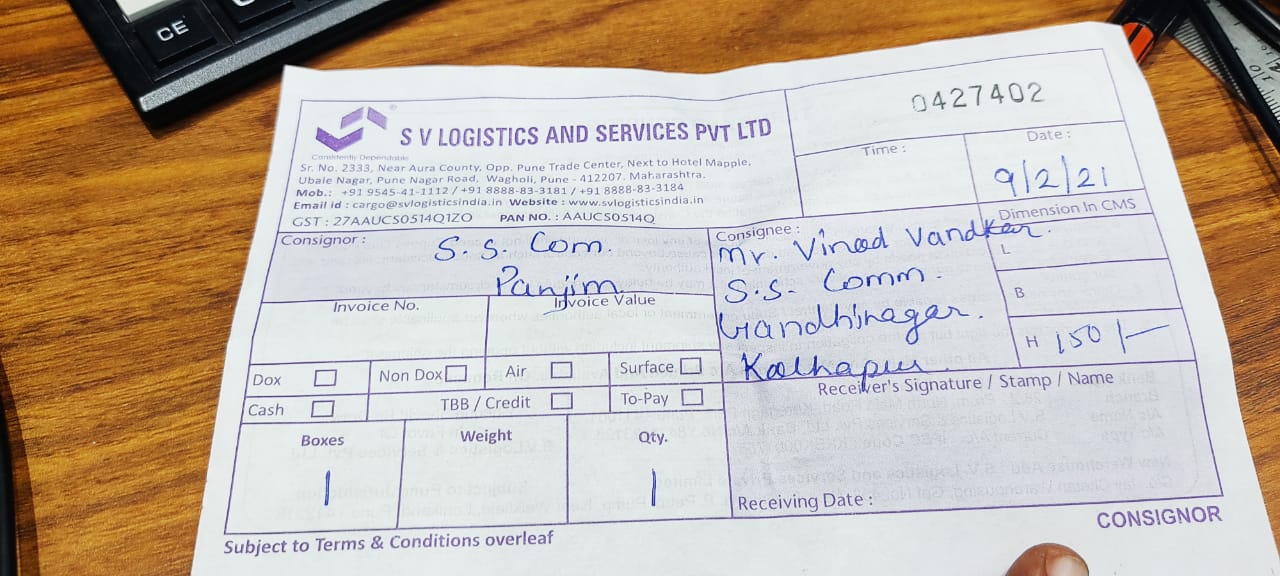 CE
0427402
S V LOGISTICS AND SERVICES PVT LTD
Consistently Dependable
Sr. No. 2333, Near Aura County, Opp. Pune Trade Center, Next to Hotel Mapple,
Ubale Nagar, Pune Nagar Road, Wagholi, Pune - 412207. Maharashtra.
Mob.: +91 9545-41-1112 / +91 8888-83-3181 / +91 8888-83-3184
Email id : cargo@svlogisticsindia.in Website : www.svlogisticsindia.in
GST : 27AAUCS0514Q1ZO PAN NO. : AAUCS0514Q
Time :
Date :
9/2/21
Consignor :
S. S. Com.
Panjim
Consignee :
Mr. Vinod Vandkar.
S.S. Comm.
Gandhinagar.
Kolhapur.
Dimension In CMS
L
B
H 150/-
Invoice No.
Invoice Value
Dox
Non Dox
Air
Surface
Cash
TBB / Credit
To-Pay
Boxes
Weight
Qty.
1
1
Receiver's Signature / Stamp / Name
Receiving Date :
Subject to Terms & Conditions overleaf
CONSIGNOR